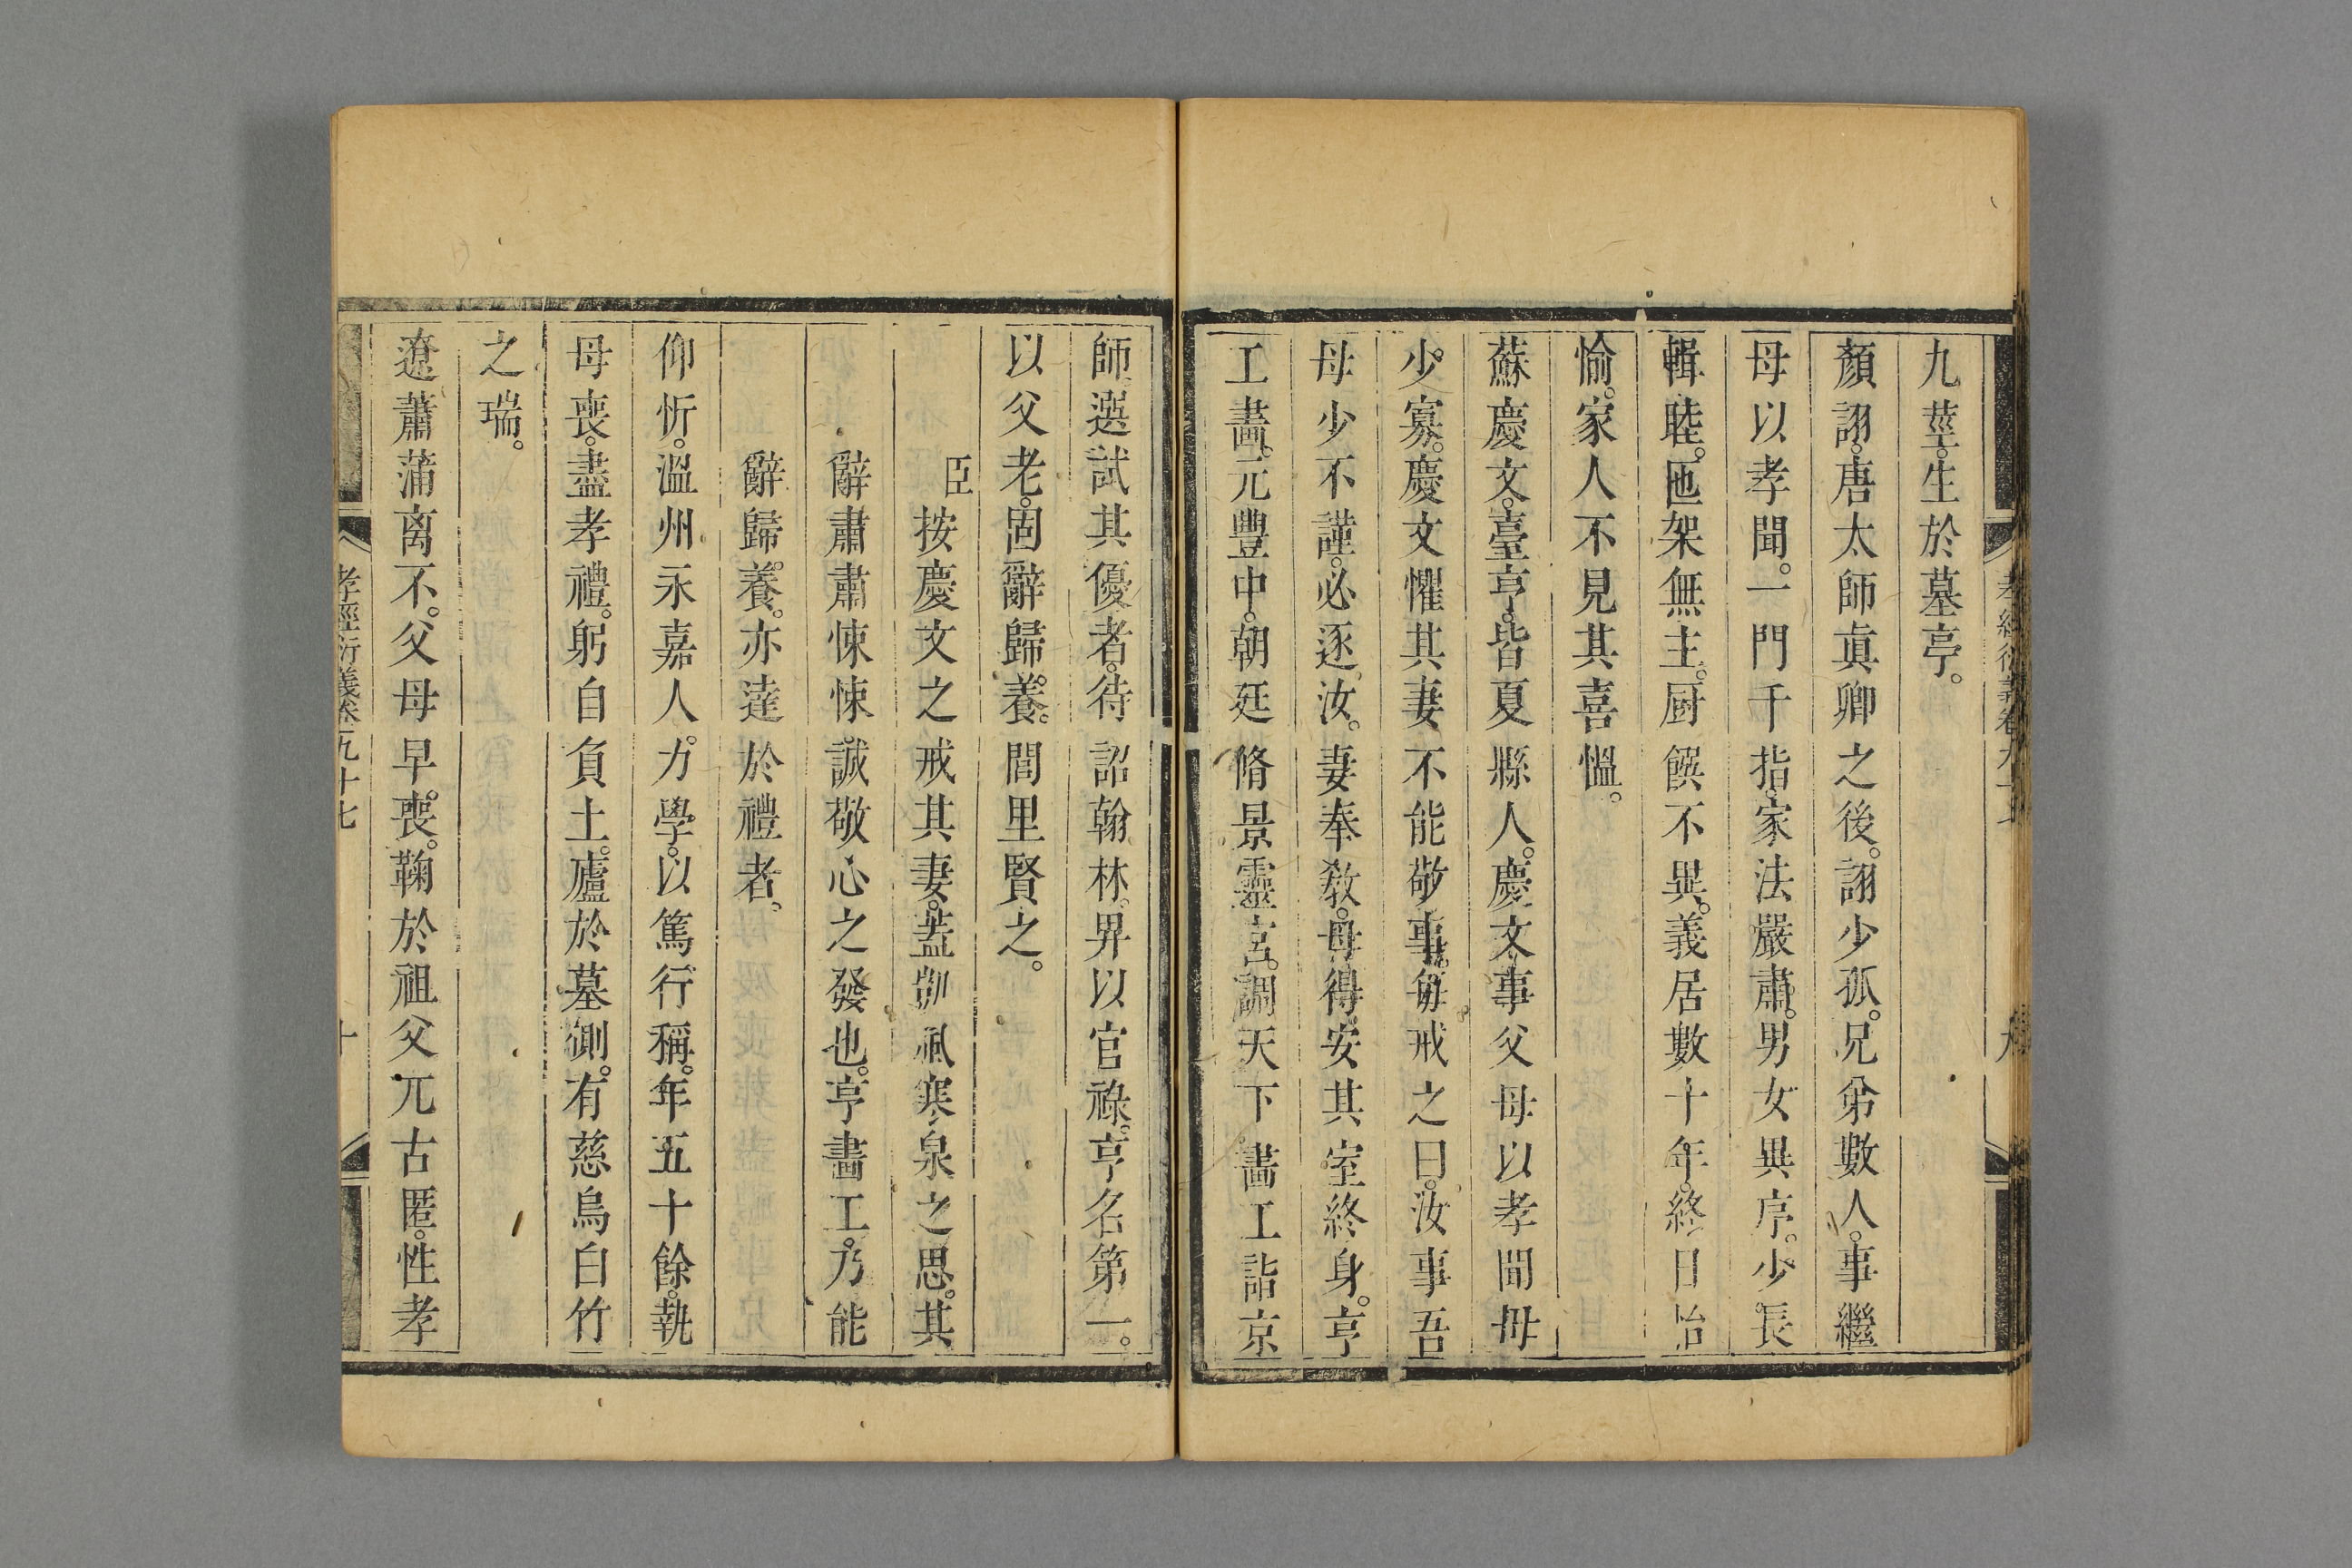 九莖。生於墓亭。
顏詡。唐太師眞卿之後。詡少孤。兄弟數人。事繼
母以孝聞。一門千指。家法嚴肅。男女異序。少長
輯睦。匜架無主。厨饌不異。義居數十年。終日怡
愉。家人不見其喜慍。
蘇慶文。臺亨。皆夏縣人。慶文事父母以孝聞。母
少寡。慶文懼其妻不能敬事。每戒之曰。汝事吾
母少不謹。必逐汝。妻奉敎。母得安其室終身。亨
工畫。元豐中。朝廷脩景靈宮。調天下畫工詣京
師。選試其優者。待詔翰林。畀以官祿。亨名第一。
以父老。固辭歸養。閭里賢之。
臣按慶文之戒其妻。蓋凱風寒泉之思。其
辭肅肅悚悚。誠敬心之發也。亨畫工。乃能
辭歸養。亦達於禮者。
仰忻。溫州永嘉人。力學。以篤行稱。年五十餘。執
母喪。盡孝禮。躬自負土。廬於墓側。有慈烏白竹
之瑞。
遼蕭蒲离不。父母早喪。鞠於祖父兀古匿。性孝
孝經衍義卷九十七
十